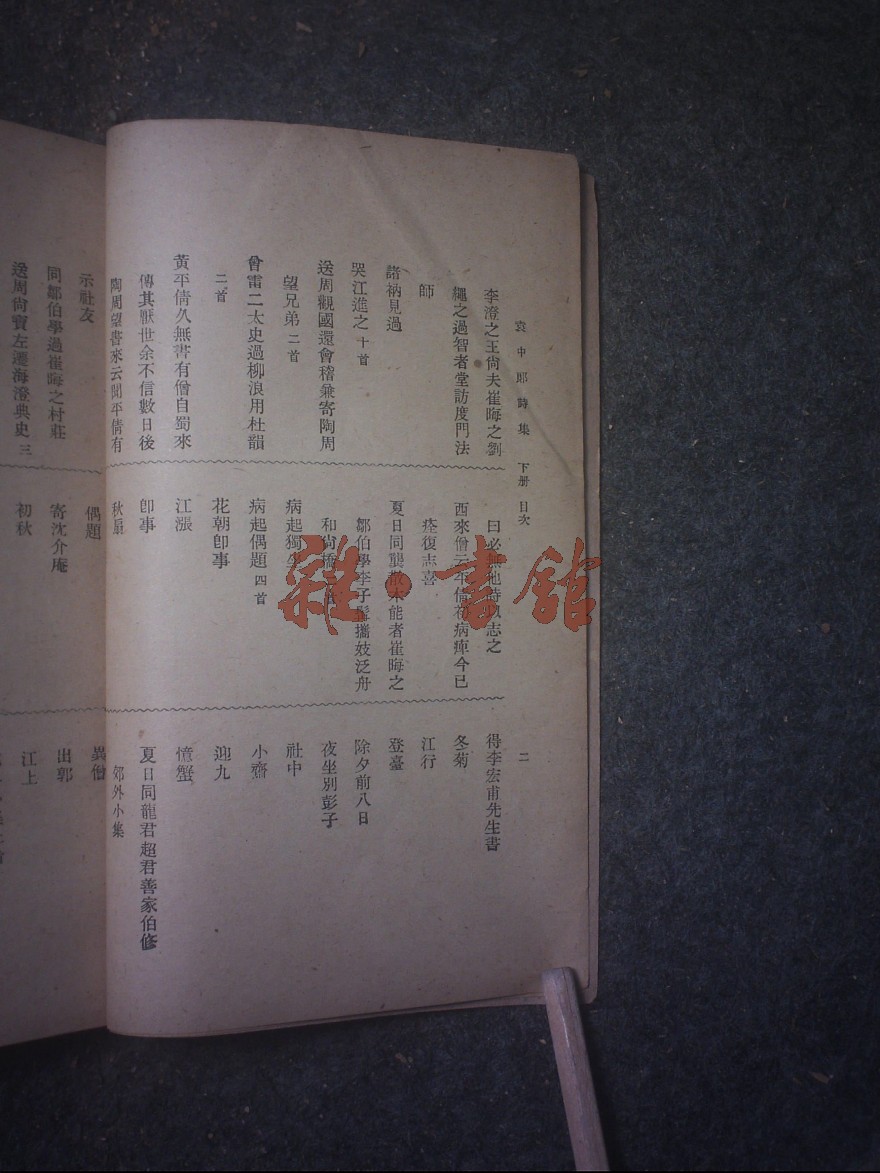 袁中郎詩集 下册 目次
二
李澄之王尙夫崔晦之劉
繩之過智者堂訪度門法
師
諸衲見過
哭江進之 十首
送周觀國還會稽兼寄陶周
望兄弟 二首
曾雷二太史過柳浪用杜韻
二首
黃平倩久無書有僧自蜀來
傳其厭世余不信數日後
陶周望書來云聞平倩有
示社友
同鄒伯學過崔晦之村莊
送周尙寶左遷海澄典史 三
曰必無他詩以志之
西來僧云平倩初病痺今已
痊復志喜
夏日同龔散木能者崔晦之
鄒伯學李子髯攜妓泛舟
和尙橋
病起獨坐
病起偶題 四首
花朝卽事
江漲
卽事
秋扇
偶題
寄沈介庵
初秋
得李宏甫先生書
冬菊
江行
登臺
除夕前八日
夜坐別彭子
社中
小齋
迎九
憶蟹
夏日同龍君超君善家伯修
郊外小集
異僧
出郭
江上
雜·書館